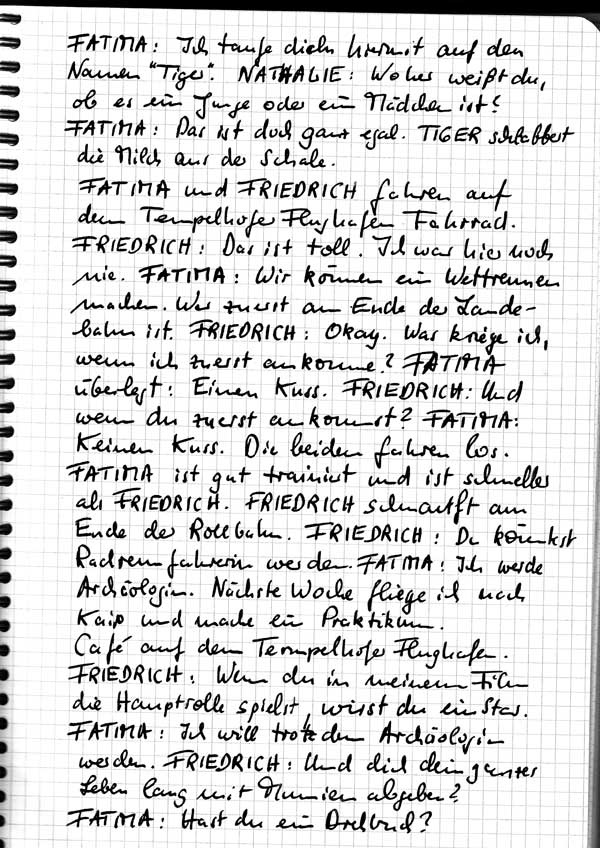 FATIMA: Ich taufe dich hiermit auf den
Namen "Tiger". NATHALIE: Woher weißt du,
ob es ein Junge oder ein Mädchen ist?
FATIMA: Das ist doch ganz egal. TIGER schlabbert
die Milch aus der Schale.
FATIMA und FRIEDRICH fahren auf
dem Tempelhofer Flughafen Fahrrad.
FRIEDRICH: Das ist toll. Ich war hier noch
nie. FATIMA: Wir können ein Wettrennen
machen. Wer zuerst am Ende der Lande-
bahn ist. FRIEDRICH: Okay. Was kriege ich,
wenn ich zuerst ankomme? FATIMA
überlegt: Einen Kuss. FRIEDRICH: Und
wenn du zuerst ankommst? FATIMA:
Keinen Kuss. Die beiden fahren los.
FATIMA ist gut trainiert und ist schneller
als FRIEDRICH. FRIEDRICH schnauft am
Ende der Rollbahn. FRIEDRICH: Du könntest
Radrennfahrerin werden. FATIMA: Ich werde
Archäologin. Nächste Woche fliege ich nach
Kairo und mache ein Praktikum.
Café auf dem Tempelhofer Flughafen.
FRIEDRICH: Wenn du in meinem Film
die Hauptrolle spielst, wirst du ein Star.
FATIMA: Ich will trotzdem Archäologin
werden. FRIEDRICH: Und dich dein ganzes
Leben lang mit Mumien abgeben?
FATIMA: Hast du ein Drehbuch?